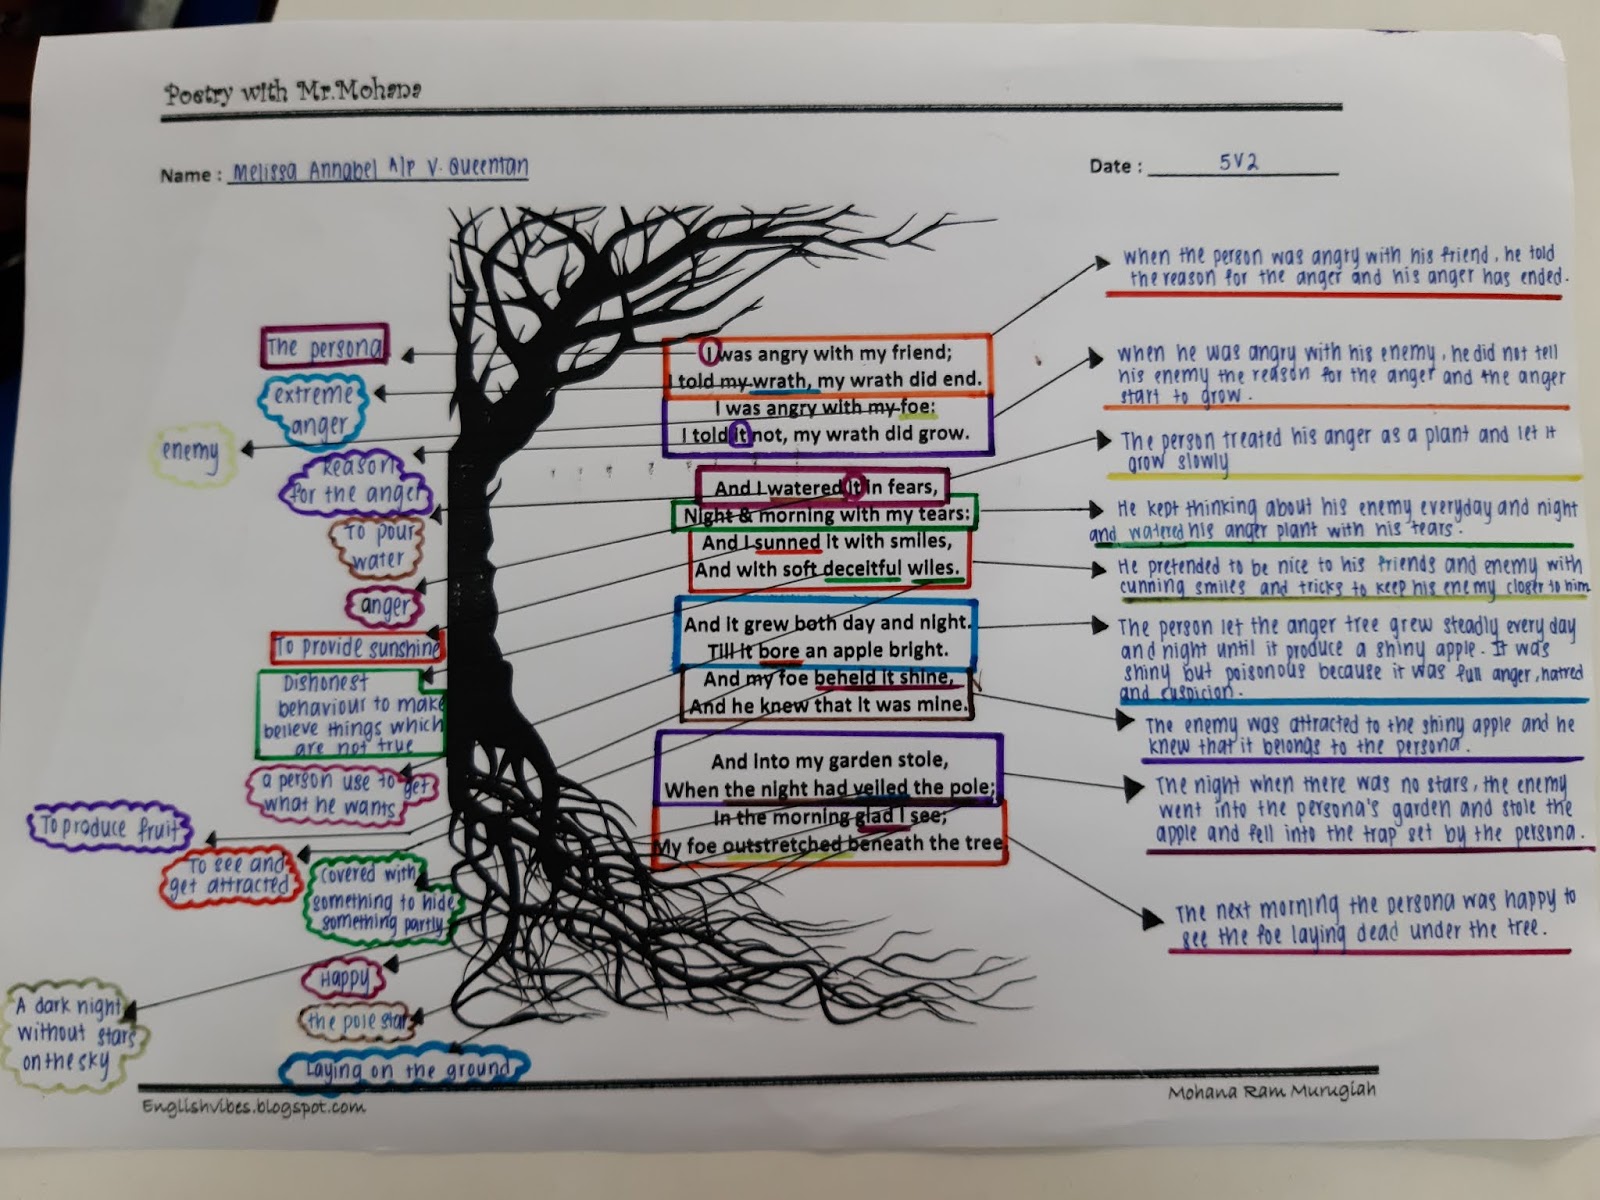 Poetry with Mr.Mohana
Name : Melissa Annabel A/P V. Queentan
Date : 5V2
The persona
extreme
anger
enemy
Reason
for the anger
To pour
water
anger
To provide sunshine
Dishonest
behaviour to make
believe things which
are not true
a person use to get
what he wants
To produce fruit
To see and
get attracted
covered with
something to hide
something partly
Happy
A dark night
without stars
on the sky
the pole star
Laying on the ground
I was angry with my friend;
I told my wrath, my wrath did end.
I was angry with my foe:
I told it not, my wrath did grow.
And I watered it in fears,
Night & morning with my tears:
And I sunned it with smiles,
And with soft deceitful wiles.
And it grew both day and night.
Till it bore an apple bright.
And my foe beheld it shine,
And he knew that it was mine.
And into my garden stole,
When the night had veiled the pole;
In the morning glad I see;
My foe outstretched beneath the tree
when the person was angry with his friend, he told
the reason for the anger and his anger has ended.
when he was angry with his enemy, he did not tell
his enemy the reason for the anger and the anger
start to grow.
The person treated his anger as a plant and let it
grow slowly
He kept thinking about his enemy everyday and night
and watered his anger plant with his tears.
He pretended to be nice to his friends and enemy with
cunning smiles and tricks to keep his enemy closer to him
The person let the anger tree grew steadly every day
and night until it produce a shiny apple. It was
shiny but poisonous because it was full anger, hatred
and suspicion.
The enemy was attracted to the shiny apple and he
knew that it belongs to the persona.
The night when there was no stars, the enemy
went into the persona's garden and stole the
apple and fell into the trap set by the persona.
The next morning the persona was happy to
see the foe laying dead under the tree.
Englishvibes.blogspot.com
Mohana Ram Murugiah